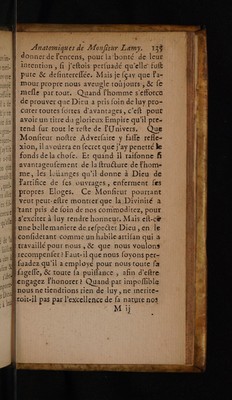 Anatomiques de Monsieur Lamy. 135
donner de l'encens, pour la bonté de leur
intention, si j'estois persuadé qu'elle fust
pute & desinteressée. Mais je sçay que l'a-
mour propre nous aveugle toûjours, & se
mesle par tout. Quand l'homme s'efforce
de prouver que Dieu a pris soin de luy pro-
curer toutes sortes d'avantages, c'est pour
avoir un titre du glorieux Empire qu'il pre-
tend sur tout le reste de l'Univers. Que
Monsieur nostre Adversaire y fasse refle-
xion, il avoüera en secret que j'ay penetré le
fonds de la chose. Et quand il raisonne si
avantageusement de la structure de l'hom-
me, les loüanges qu'il donne à Dieu de
l'artifice de ses ouvrages, enferment ses
propres Eloges. Ce Monsieur pourtant
veut peut-estre montrer que la Divinité a
tant pris de soin de nos commoditez, pour
s'exciter à luy rendre honneur. Mais est-ce
une belle maniere de respecter Dieu, en le
considerant comme un habile artisan qui a
travaillé pout nous, & que nous voulons
recompenser? Faut-il que nous soyons per-
suadez qu'il a employé pour nous toute sa
sagesse, & toute sa puissance, afin d'estre
engagez l'honorer? Quand par impossible
nous ne tiendtions rien de luy, ne merite-
roit-il pas par l'excellence de sa nature nos
M ij